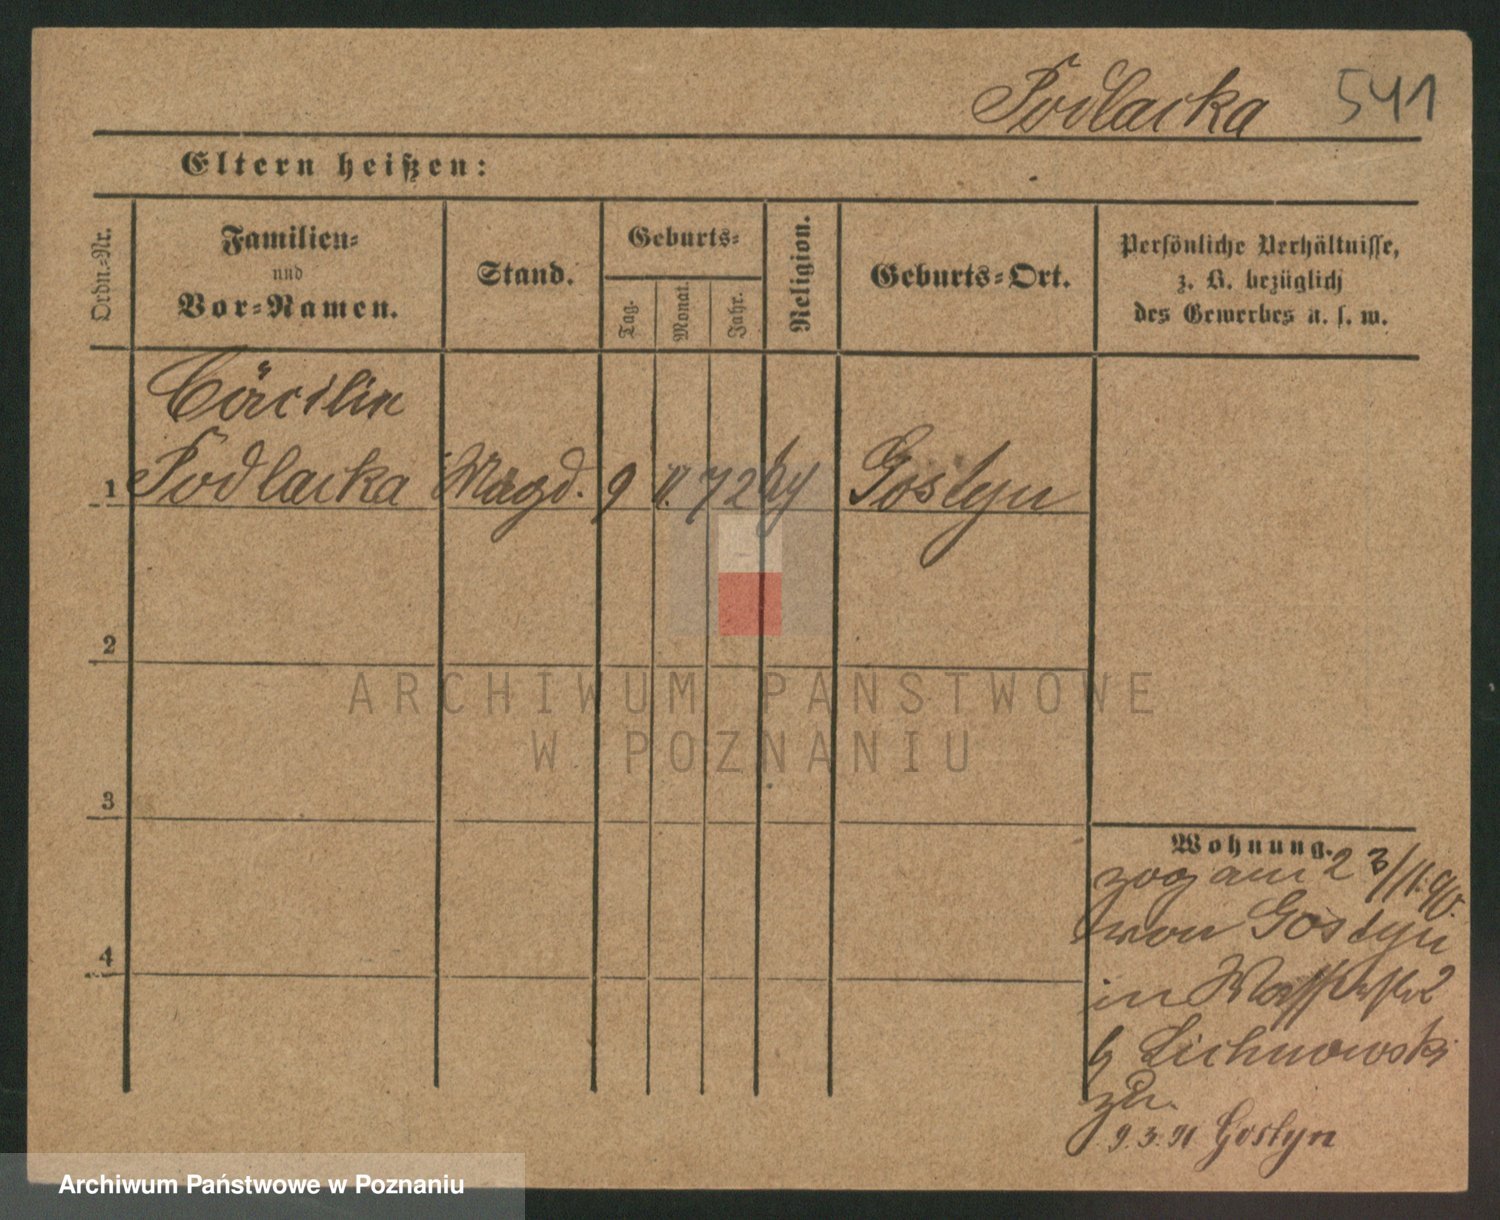 Podlacka 541
Eltern heißen:
Ordn.-Nr.
Familien-
und
Vor-Namen.
Stand.
Geburts-
Tag.
Monat.
Jahr.
Religion.
Geburts-Ort.
Persönliche Verhältnisse,
z. B. bezüglich
des Gewerbes u. s. w.
Cäcilie
1 Podlacka Magd. 9 11. 72 Gostyn
2
3
4
ARCHIWUM PAŃSTWOWE
W POZNANIU
Wohnung.
zog am 23/11.90.
von Gostyn
in
b Lichnowski
zu.
9.3.91 Gostyn
Archiwum Państwowe w Poznaniu